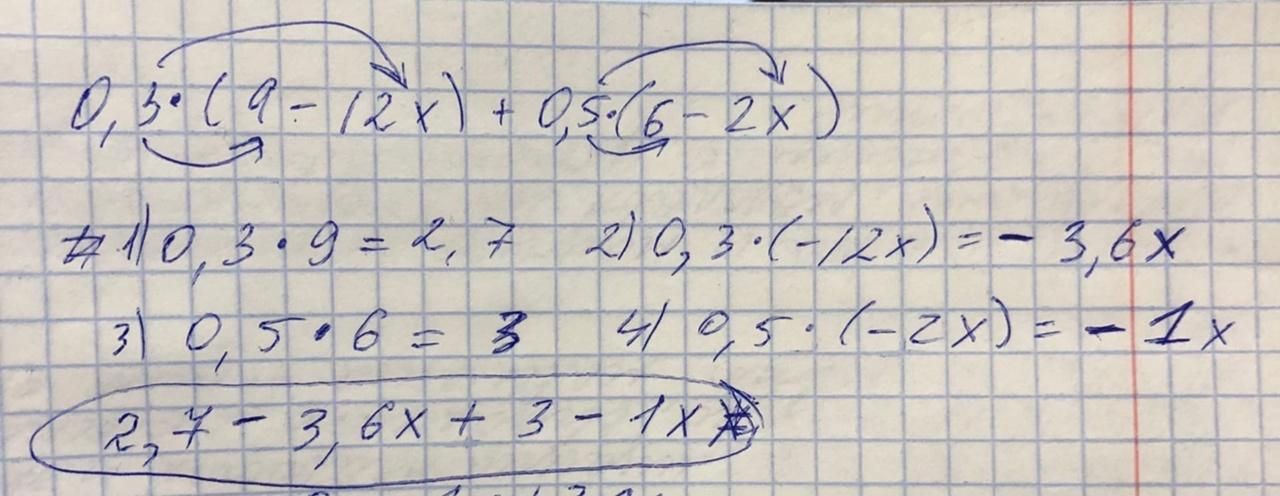 0,3·(9-12x)+0,5·(6-2x)
1) 0,3·9=2,7 2) 0,3·(-12x)=-3,6x
3) 0,5·6=3 4) 0,5·(-2x)=-1x
2,7-3,6x+3-1x